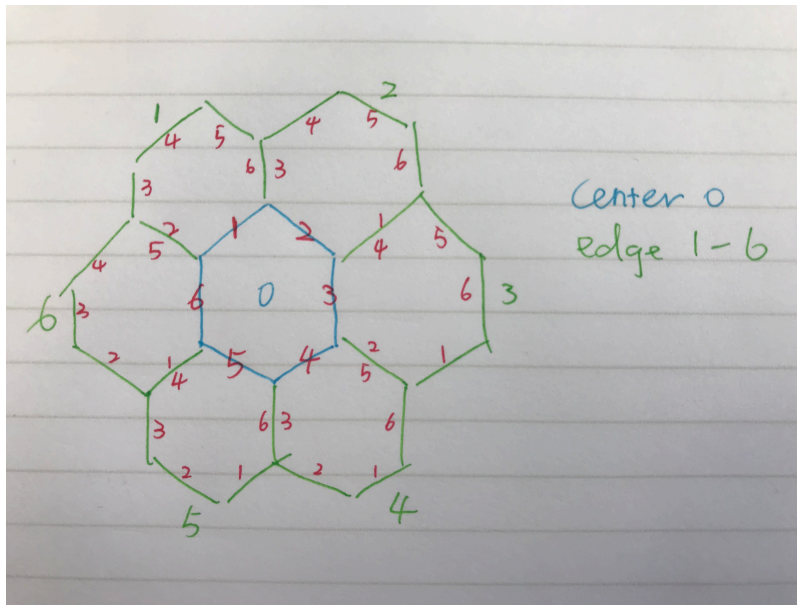 1
2
4 5
4 5
6 3
6
3
2
5
1 2
1
4
5
4
6 0 3
6 3
6 3
2
1
4
5 4
2
5
1
3
6 3
6
2 1
2 1
5
4
Center 0
edge 1-6